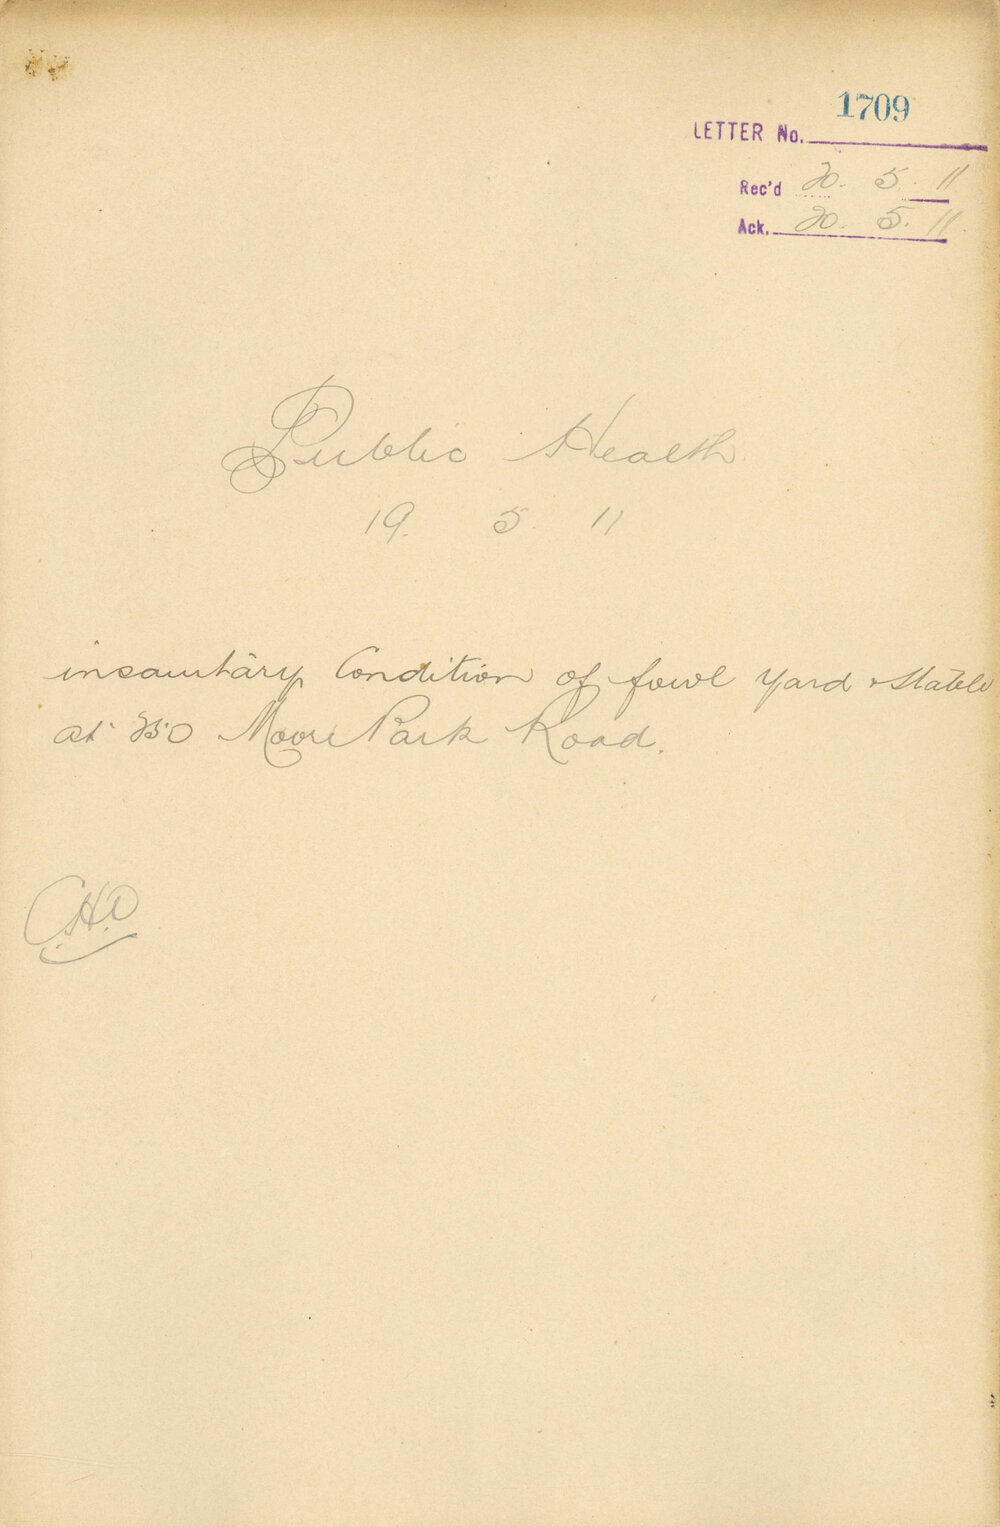 1709
LETTER No.
Rec'd 20. 5. 11
Ack. 20. 5. 11.
Public Health.
19. 5. 11
insanitary Condition of fowl yard & Stable
at 250 Moore Park Road.
C.H.O